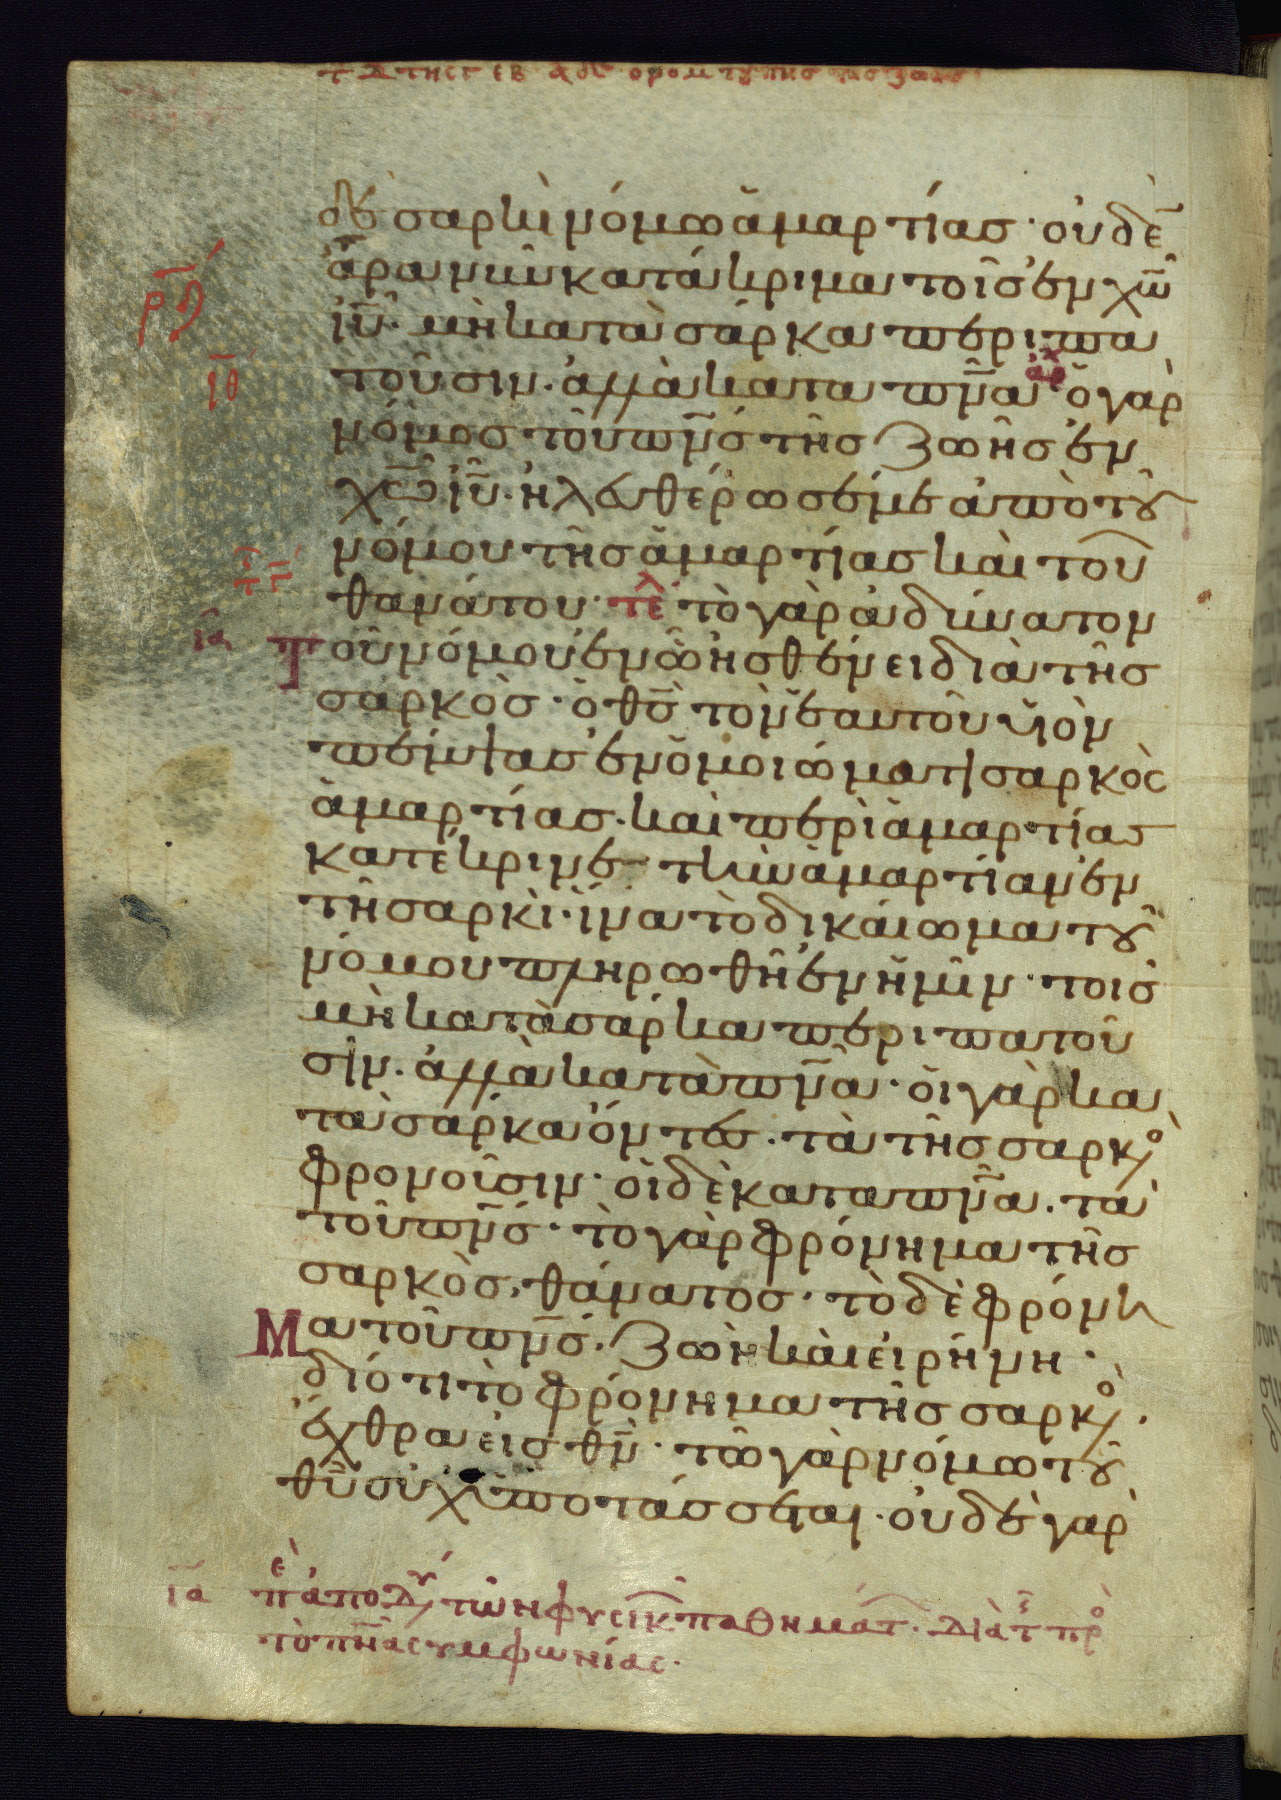 τῆ δὲ σαρκὶ νόμω ἁμαρτίας· οὐδὲ̄
ἄρα νῦν κατάκριμα τοῖς ἐν χω̅
ιυ̅· μὴ κατὰ σάρκα περιπα
τοῦσιν· ἀλλὰ κατὰ πν̅α· ὁ γὰρ
νόμος τοῦ πν̅ς τῆς ζωῆς ἐν
χω̅ ιυ̅· ἠλευθέρωσέν με ἀπὸ τοῦ
νόμου τῆς ἁμαρτίας καὶ τοῦ
θανάτου· τε̑λ τὸ γὰρ ἀδύνατον
τοῦ νόμου ἐν ὧ ἠσθένει διὰ τῆς
σαρκὸς· ὁ θς̅ τὸν ἑαυτοῦ υἱὸν
πέμψας ἐν ὁμοιώματι σαρκὸς
ἁμαρτίας· καὶ περὶ ἁμαρτίας
κατέκρινε τὴν ἁμαρτίαν ἐν
τῆ σαρκὶ· ἵνα τὸ δικαίωμα τοῦ
νόμου πληρωθῆ ἐν ἡμῖν· τοῖς
μὴ κατὰ σάρκα περιπατοῦ
σιν· ἀλλὰ κατὰ πν̅α· οἱ γὰρ κα
τὰ σάρκα ὄντες· τὰ τῆς σαρκὸ
φρονοῦσιν· οἱ δὲ κατὰ πν̅α· τὰ
τοῦ πν̅ς· τὸ γὰρ φρόνημα τῆς
σαρκὸς· θάνατος· τὸ δὲ φρόνη
μα τοῦ πν̅ς· ζωὴ καὶ εἰρήνη·
διότι τὸ φρόνημα τῆς σαρκὸ·
ἔχθρα εἰς θν̅· τῶ γὰρ νόμω τοῦ
θυ̅ οὐχ ὑποτάσσεται· οὐδὲ γὰρ
ια̅ πὲ ἀποδυ τῶν φυσικ παθημάτ· διὰ τῆς πρὸ
τὸ πν̅α συμφωνίας·